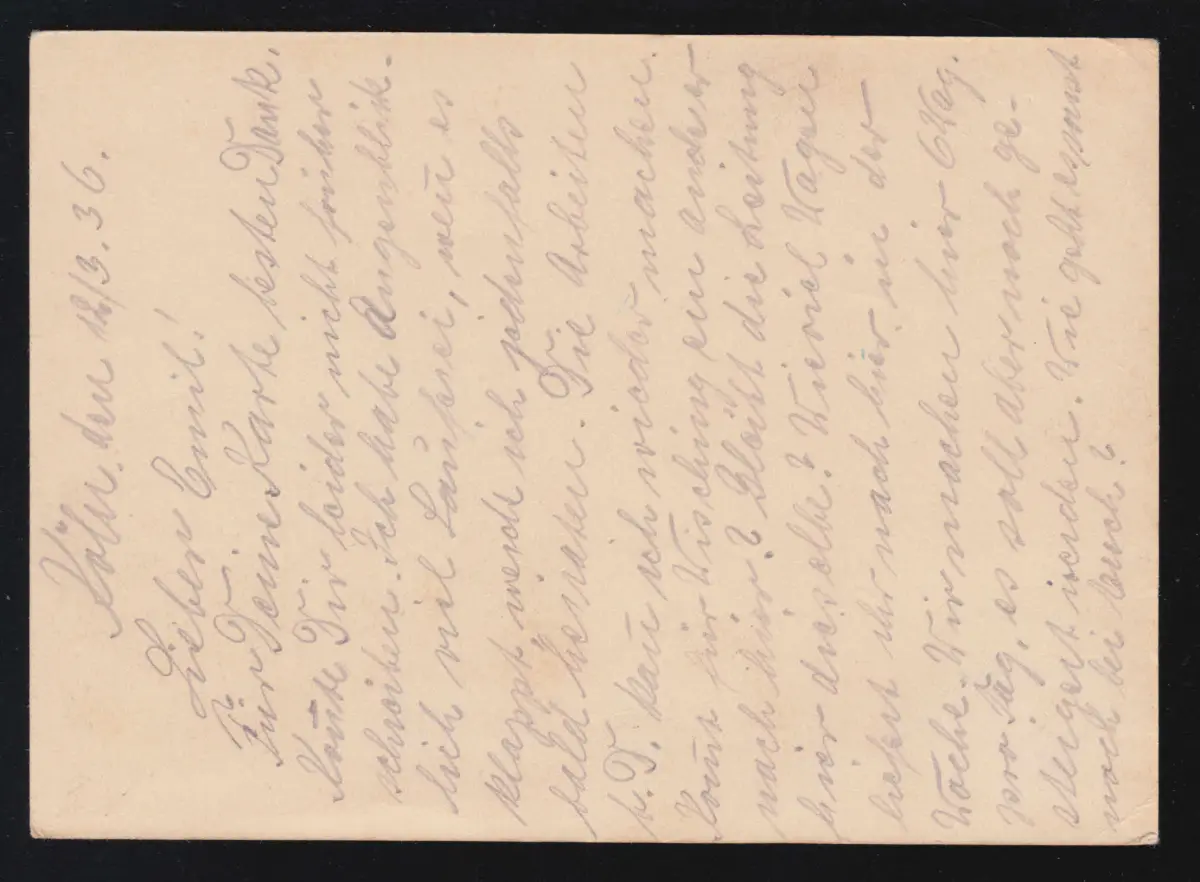 Köln, den 12/3. 36.
Lieber Emil!
Für Deine Karte besten Dank.
Konnte Dir leider nicht früher
schreiben. Ich habe Augenblick-
lich viel Lauferei, wen̄ es
klappt werde ich jedenfalls
bald heiraten. Die Arbeiten
b. D. kan̄ ich wieder machen.
Kom̄t für Wisching ein ander
nach hier? Bleibt die Leitung
hier dieselbe? Wieviel Wagen
liefert ihr nach hier in der
Woche. Wir machen hier 6 Wag.
pro Tag, es soll aber noch ge-
steigert werden. Wie geht es sonst
noch bei Euch?